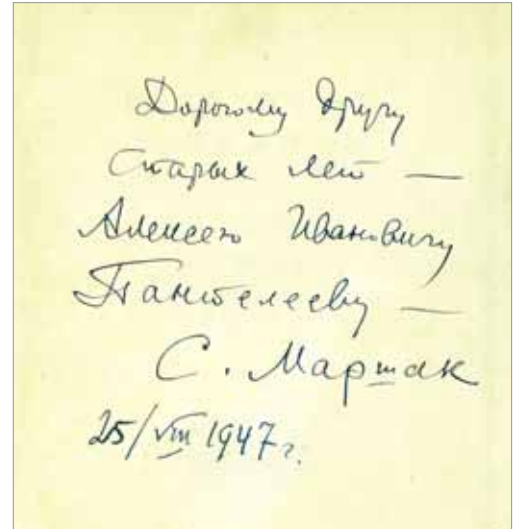 Дорогому другу
старых лет —
Алексею Ивановичу
Пантелееву —
С. Маршак
25/VIII 1947 г.